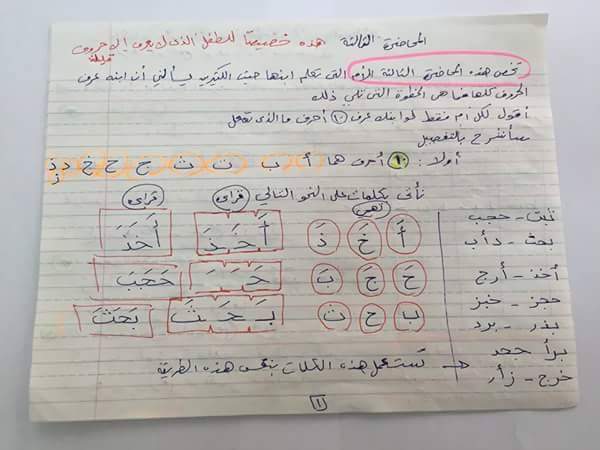 المحاضرة الثالثة هذه خصيصًا للطفل الذى لا يعرف إلا حروف قليلة
تخص هذه المحاضرة الثالثة الأم التى تعلم ابنها حيث الكثير يسألني أن ابنه عرف
الحروف كلها فما هى الخطوة التى تلي ذلك
أقول لكل أم فقط لو ابنك عرف ١٠ أحرف ما الذى تفعل
سأشرح بالتفصيل
أولا: ١٠ أحرف هما أ ب ت ث ج ح خ د ذ ز
نأتى بكلمات على النحو التالي
تهجى قراءى قراءى
أَ خَ ذَ أَ خَـ ذَ أَخَذَ
حَ جَ بَ حَـ جَـ بَ حَجَبَ
ب ح ث بَـ حَـ ثَ بَحَثَ
ثبت - حجب
بحث - دأب
أخذ - أرج
حجز - خبز
بذر - برد
برأ جحد
خرج - زأر
تستعمل هذه الكلمات بنفس هذه الطريقة
١